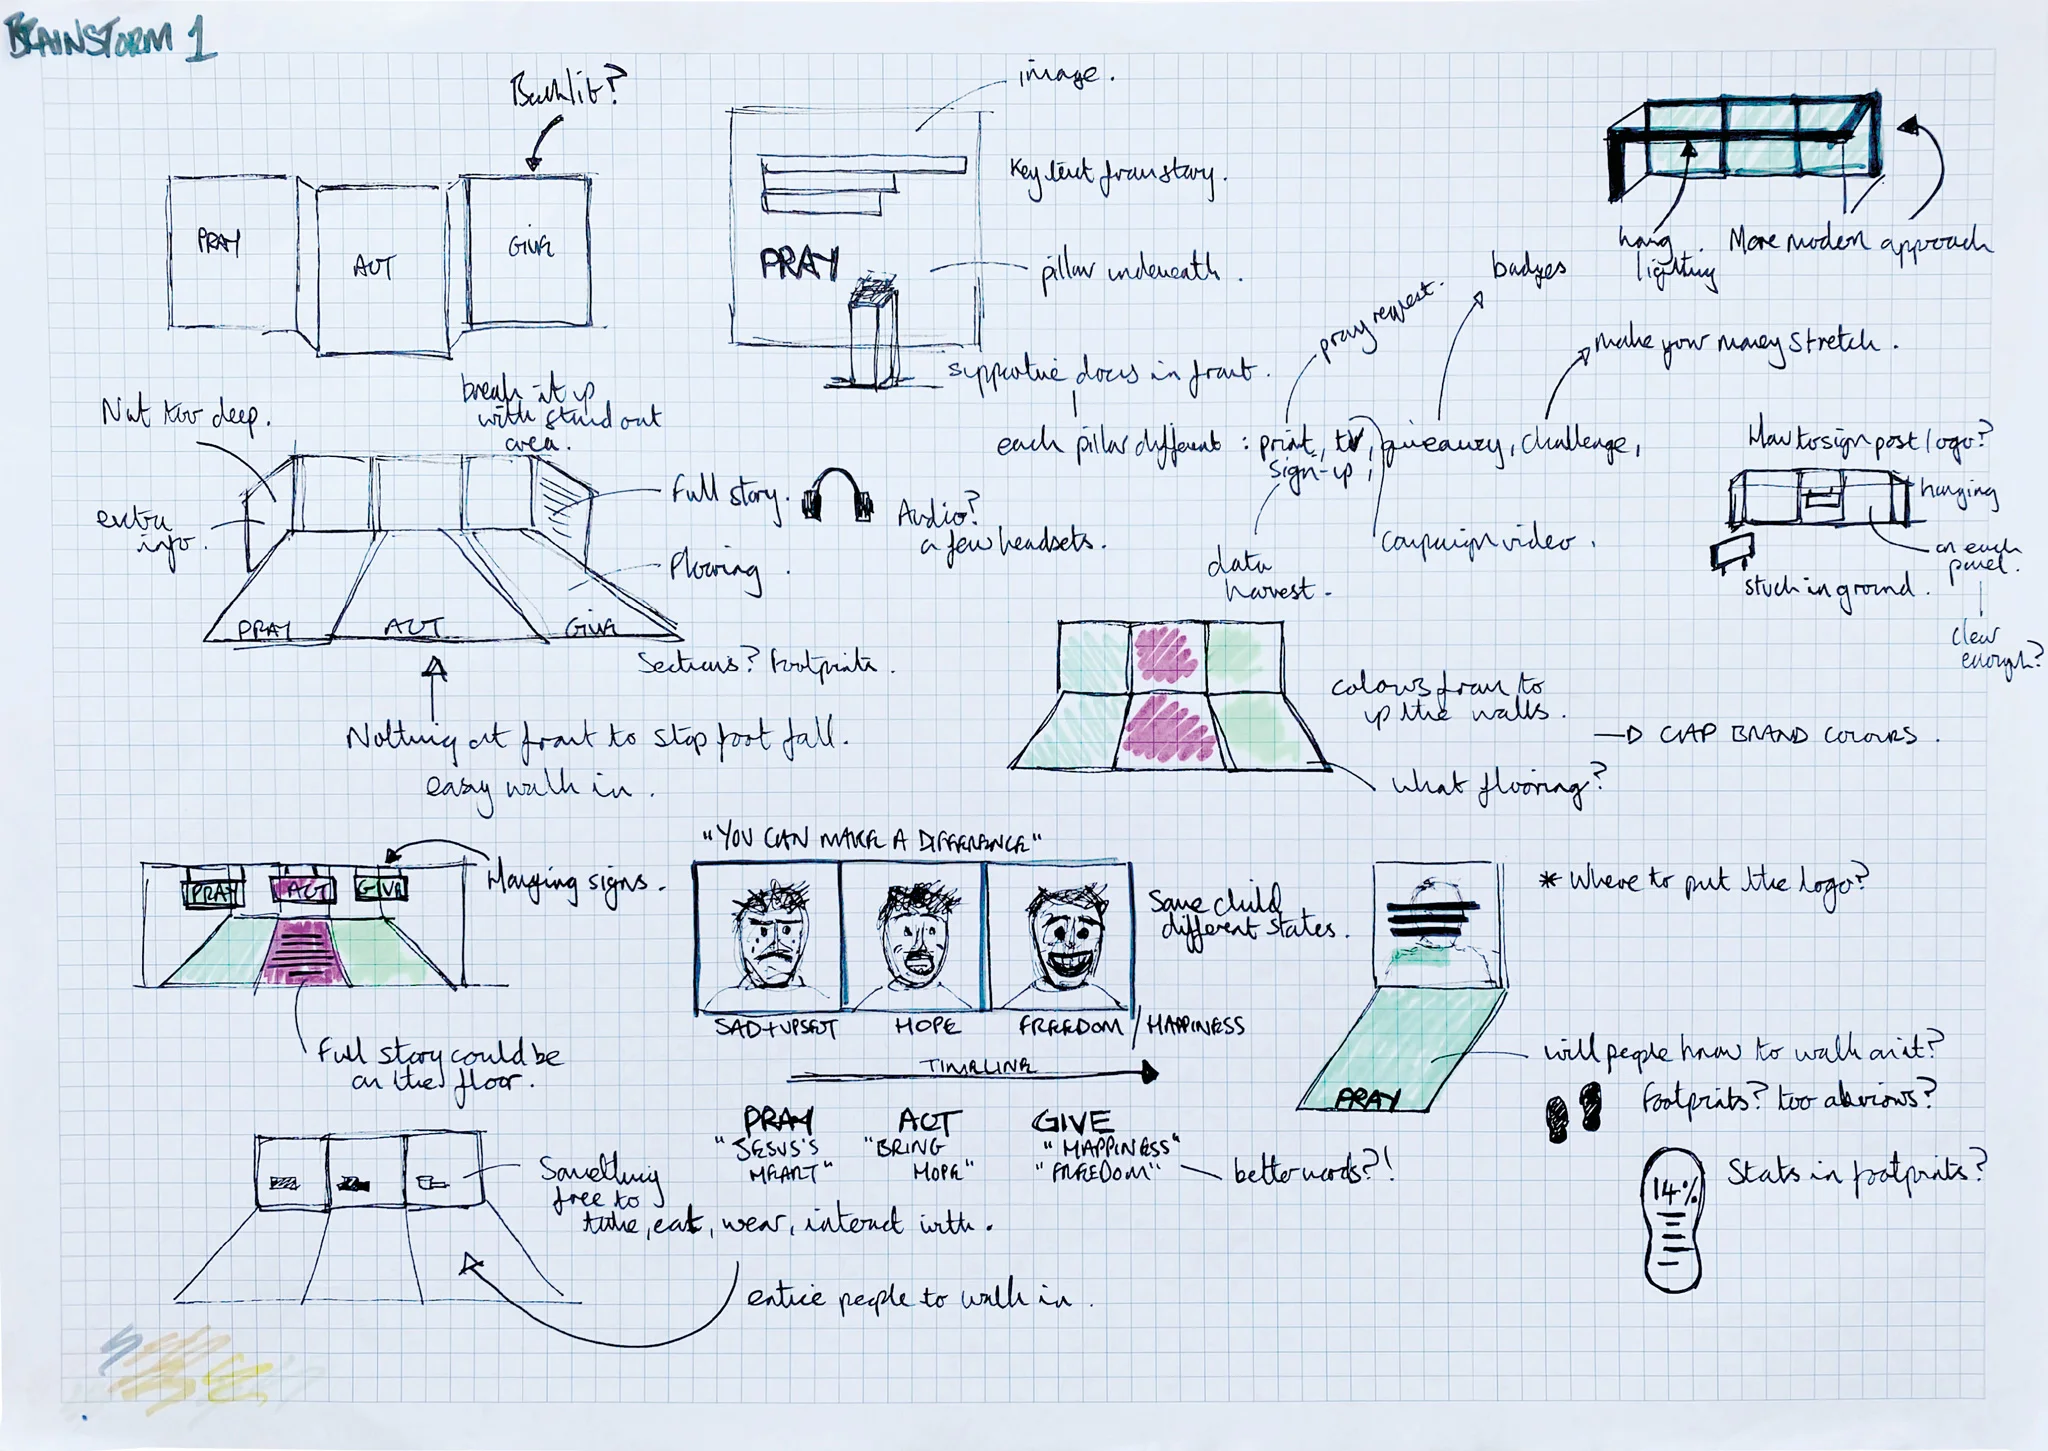 BRAINSTORM 1
Backlit?
PRAY
ACT
GIVE
image.
Key text from story.
PRAY
pillar underneath.
supportive docs in front.
each pillar different : print, tv, giveaway, challenge,
sign-up,
pray request.
badges
make your money stretch.
data
harvest.
campaign video.
hang
lighting
More modern approach
Not too deep.
break it up
with stand out
area.
extra
info.
Full story.
Flooring.
PRAY
ACT
GIVE
Audio?
a few headsets.
Sections? Footprints.
Nothing at front to stop foot fall.
easy walk in.
How to sign post/logo?
hanging
on each
panel.
stuck in ground.
clear
enough?
colours from to
up the walls.
CAP BRAND COLOURS.
What flooring?
PRAY
ACT
GIVE
Hanging signs.
Full story could be
on the floor.
"YOU CAN MAKE A DIFFERENCE"
Same child
different states.
SAD+UPSET
HOPE
FREEDOM/HAPPINESS
TIMELINE
PRAY
"JESUS'S
HEART"
ACT
"BRING
HOPE"
GIVE
"HAPPINESS"
"FREEDOM"
better words?!
* Where to put the logo?
will people know to walk on it?
PRAY
Footprints? too obvious?
Stats in footprints?
14%
Something
free to
take, eat, wear, interact with.
entice people to walk in.